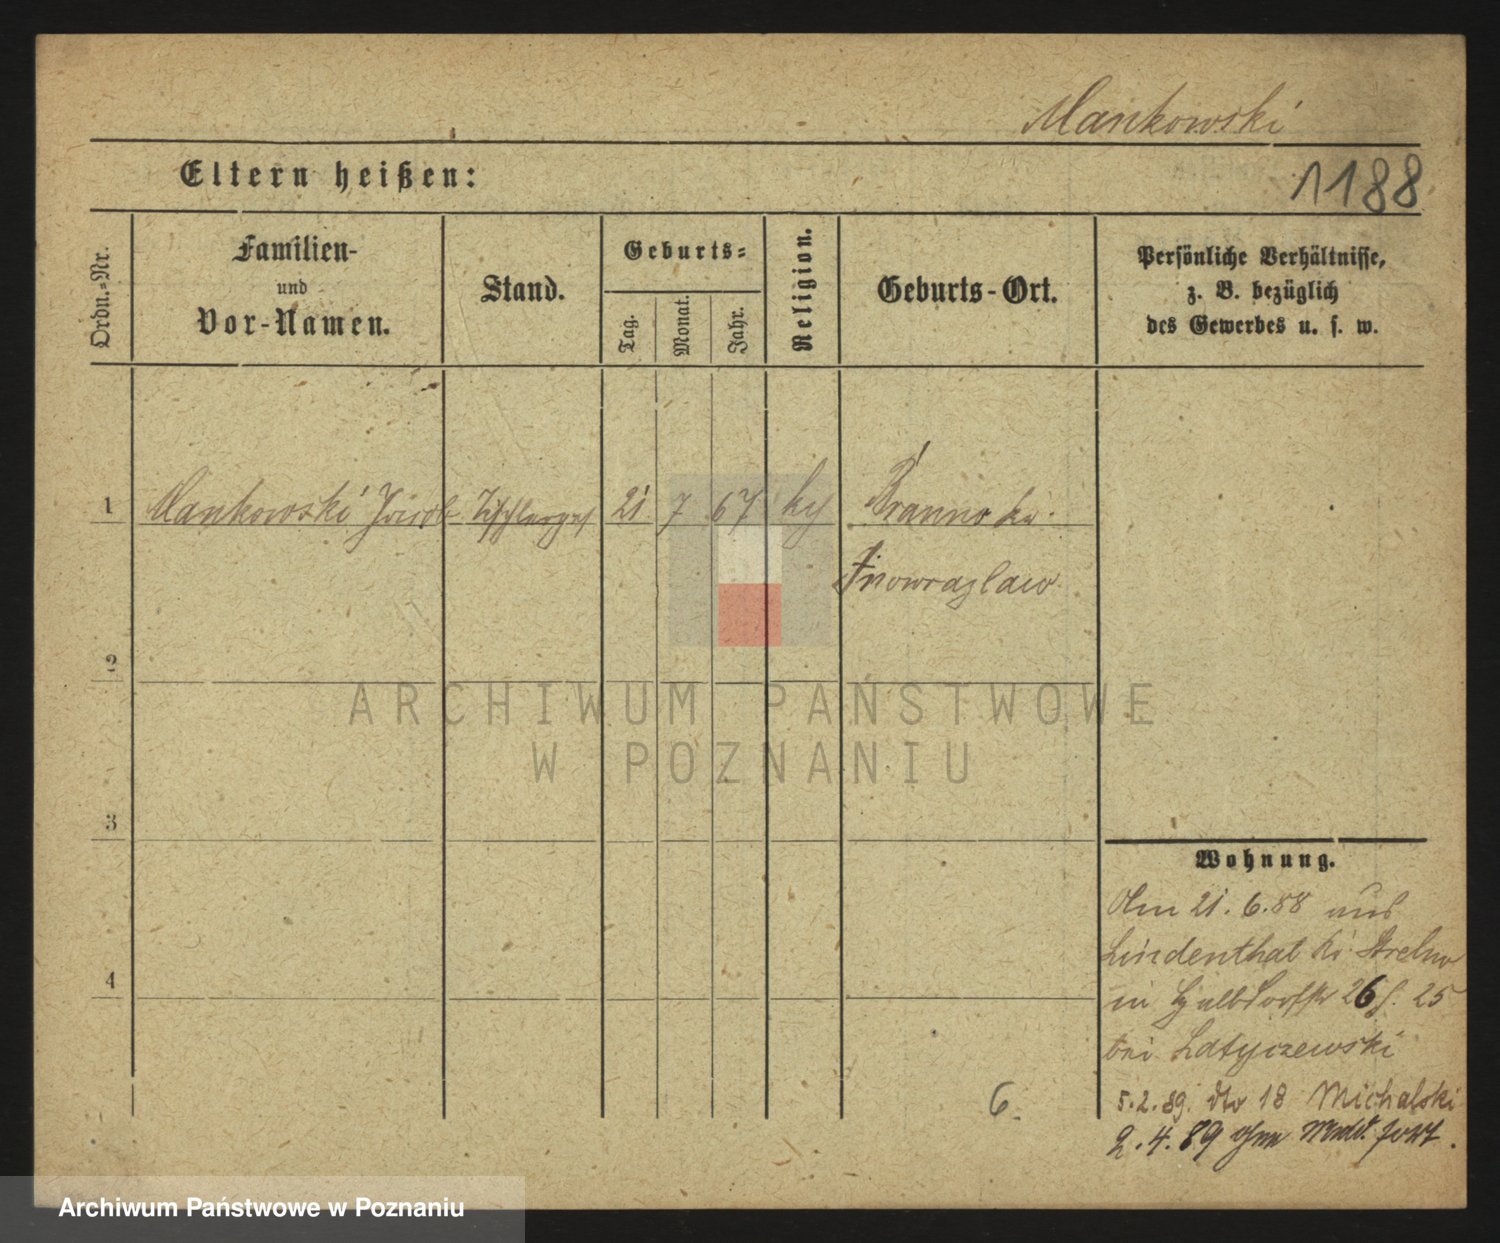 Mankowski
Eltern heißen:
1188
Ordn.-Nr.
Familien-
und
Vor-Namen.
Stand.
Geburts-
Tag.
Monat.
Jahr.
Religion.
Geburts-Ort.
Persönliche Verhältnisse,
z. B. bezüglich
des Gewerbes u. s. w.
1 Mankowski Jacob Tischlerges 21 7 67 k
Inowrazlaw
2
ARCHIWUM PAŃSTWOWE
W POZNANIU
3
4
Wohnung.
21.6.88 aus
Lindenthal Kr. Strelno
in Halbdorfstr 26 25
bei Latyczewski
6.
5.2.89. dto 18 Michalski
2.4.89 ohne fort.
Archiwum Państwowe w Poznaniu